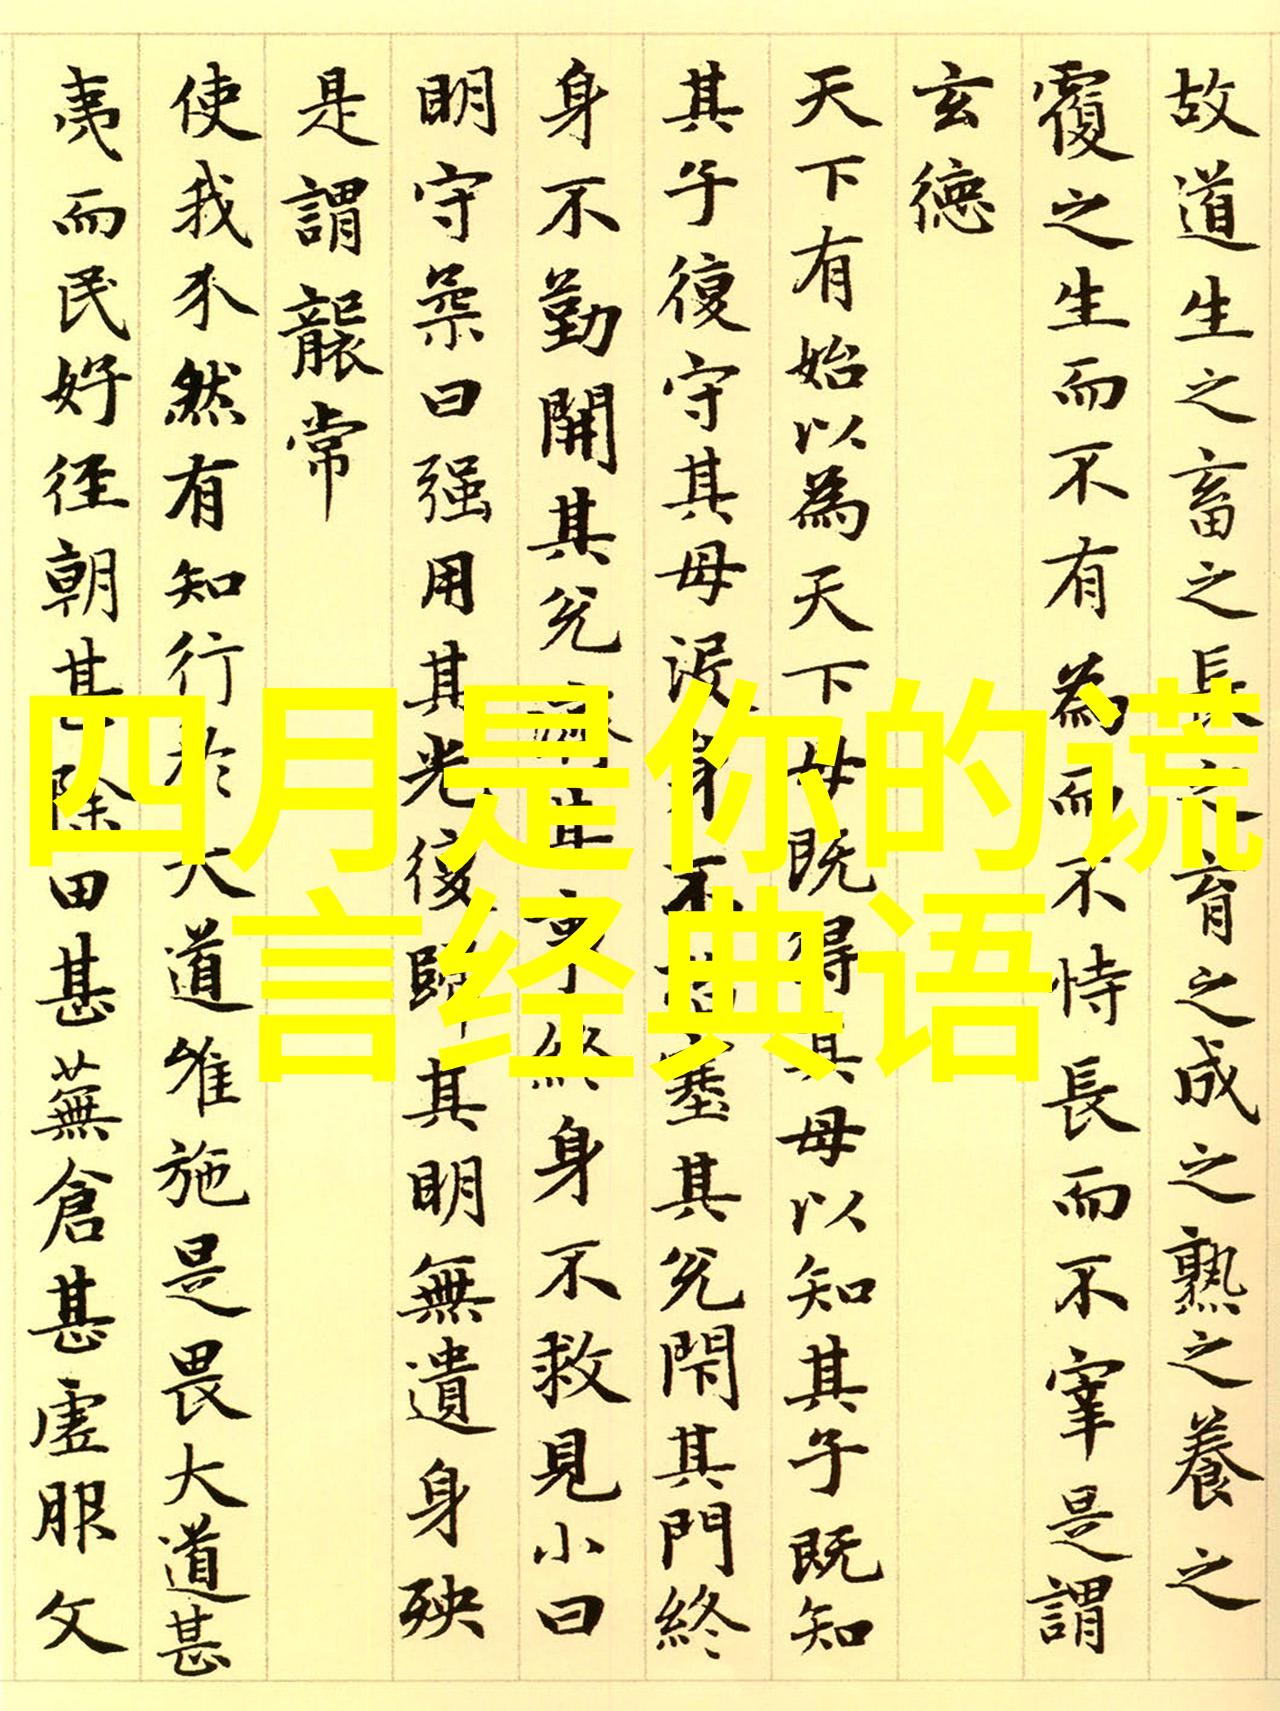 故道生之畜之長之育之成之熟之養之
覆之生而不有為而不恃長而不宰是謂
玄德
天下有始以為天下母既得其母以知其子既知
其子復守其母没身不殆塞其兑閇其門終
身不勤開其兑濟其事終身不救見小曰
明守柔曰强用其光復歸其明無遺身殃
是謂襲常
使我介然有知行於大道唯施是畏大道甚
夷而民好徑朝甚除田甚蕪倉甚虗服文
四月是你的谎
言经典语